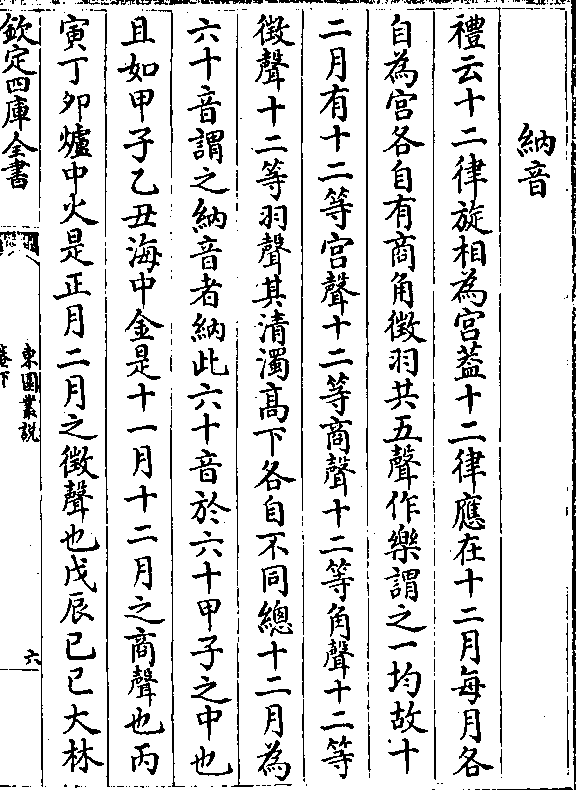 納音
禮云十二律旋相為宮葢十二律應在十二月每月各
自為宮各自有商角徴羽共五聲作樂謂之一均故十
二月有十二等宮聲十二等商聲十二等角聲十二等
徴聲十二等羽聲其清濁高下各自不同總十二月為
六十音謂之納音者納此六十音於六十甲子之中也
且如甲子乙丑海中金是十一月十二月之商聲也丙
寅丁夘爐中火是正月二月之徴聲也戊辰己巳大林
欽定四庫全書
東園叢説
卷下
六